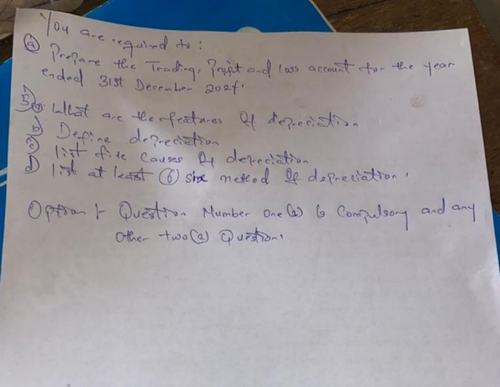 You are required to:
(a) Prepare the Trading, Profit and loss account for the year
ended 31st December 2024.
5) (a) What are the features of depreciation
(b) Define depreciation
(c) list five causes of depreciation
(d) list at least (6) six method of depreciation.
Option : Question Number one(1) is Compulsory and any
other two(2) Question.